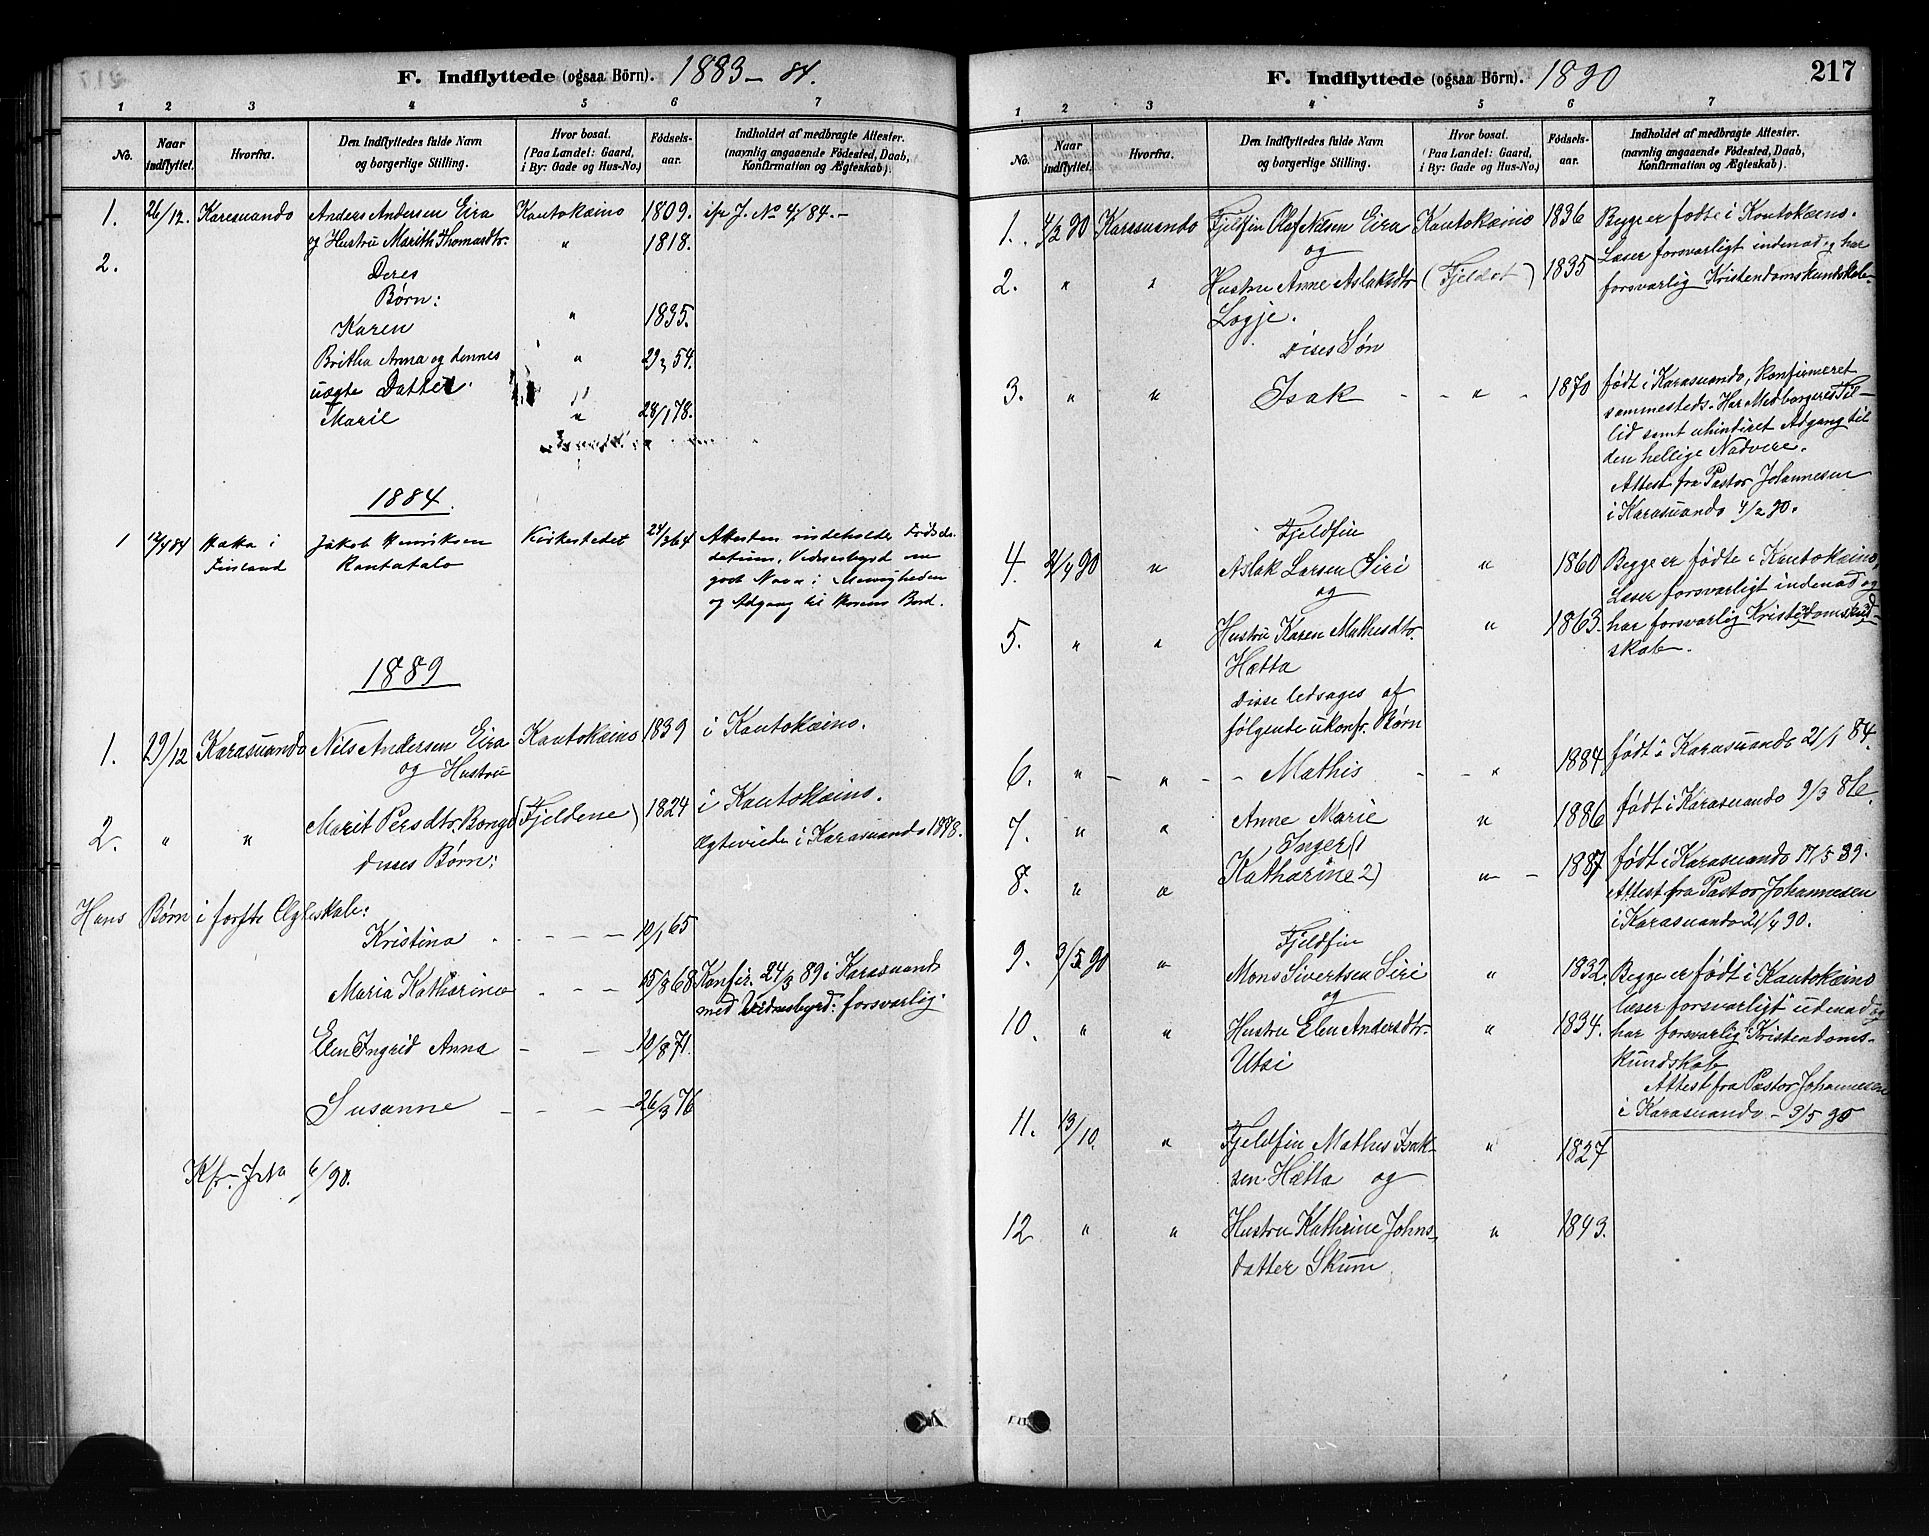 F. Indflyttede (ogsaa Börn). 1883-84.
1 2 3 4 5 6 7
No. Naar indflyttet. Hvorfra. Den Indflyttedes fulde Navn og borgerlige Stilling. Hvor bosat. (Paa Landet: Gaard, i By: Gade og Hus-No.) Födsels-aar. Indholdet af medbragte Attester. (navnlig angaaende Födested, Daab, Konfirmation og Ægteskab).
1. 26/12. Karesuando Anders Andersen Eira Kautokeino 1809. J. No 4/84.-
2. og Hustru Marith Thomasdtr. " 1818.
Deres
Børn:
Karen " 1835.
Britha Anna og dennes " 29/3 54.
uægte Datter. "
Marie " 28/1 78.
1884.
1 12/4 84 Hætta i Jakob Henriksen Kirkestedet 24/3 64 Attesten indeholder Fødsels-
Finland Rantatalo datum, Vidnesbyrd om
godt Navn i Menigheden
og Adgang til Herrens Bord.
1889
1. 29/12 Karasuando Nils Andersen Eira Kautokeino 1839 i Kautokeino.
og Hustru
2. " " Marit Persdtr. Bongo (Fjeldene) 1824 i Kautokeino.
Disses Børn: Ægteviede i Karasuando 1878.
Hans Børn i første Ægteskab:
Kristina - - - 10/1 65
Maria Katharina - - - 15/3 68 Konfir. 24/3 89 i Karasuando
med Vidnesbyrd: forsvarlig.
Elen Ingrid Anna - - - 10/8 71.
Susanne - - - 26/3 76
Kfr. J No 6/90.
F. Indflyttede (ogsaa Börn). 1890 217
1 2 3 4 5 6 7
No. Naar indflyttet. Hvorfra. Den Indflyttedes fulde Navn og borgerlige Stilling. Hvor bosat. (Paa Landet: Gaard, i By: Gade og Hus-No.) Födsels-aar. Indholdet af medbragte Attester. (navnlig angaaende Födested, Daab, Konfirmation og Ægteskab).
1. 4/2 90 Karasuando Fjeldfin Olaf Nilsen Eira Kautokeino 1836 Begge er fødte i Kautokeino.
og Læser forsvarligt indenad og har
2. " " Hustru Anne Aslaksdtr (Fjeldet) 1835 forsvarlig Kristendomskundskab.
Logje.
Dises Søn
3. " " Isak - - " - 1870 født i Karasuando, konfirmeret
sammesteds. Har Medborgeres Til-
lid samt uhindret Adgang til
den hellige Nadvere.
Attest fra Pastor Johannesen
i Karasuando 4/2 90.
Fjeldfin
4. 21/4 90 " Aslak Larsen Siri " 1860 Begge er fødte i Kautokeino,
og Læser forsvarligt indenad og
5. " " Hustru Karen Mathisdtr. " 1863. har forsvarlig Kristendomskund-
Hætta skab.
Disse ledsages af
følgende ukonfr. Børn
6. " - " - - Mathis - - " 1884 født i Karasuando 21/1 84.
7. " " Anne Marie " 1886 født i Karasuando 9/3 86.
Inger (1
8. " " Katharine 2) " - 1887 født i Karasuando 17/5 89.
Attest fra Pastor Johannesen
i Karasuando 21/4 90.
Fjeldfin
9. 3/5 90 " Mons Sivertsen Siri " 1832. Begge er født i Kautokeino
og læser forsvarligt udenad og
10. " " Hustru Elen Andersdtr. " 1834. har forsvarlig Kristendoms-
Utsi kundskab
Attest fra Pastor Johannesen
i Karasuando - 3/5 90
11. 13/10. " Fjeldfin Mathis Isak- " 1827
sen Hætta og
12 " " Hustru Kathrine Johns- " 1843.
datter Skum